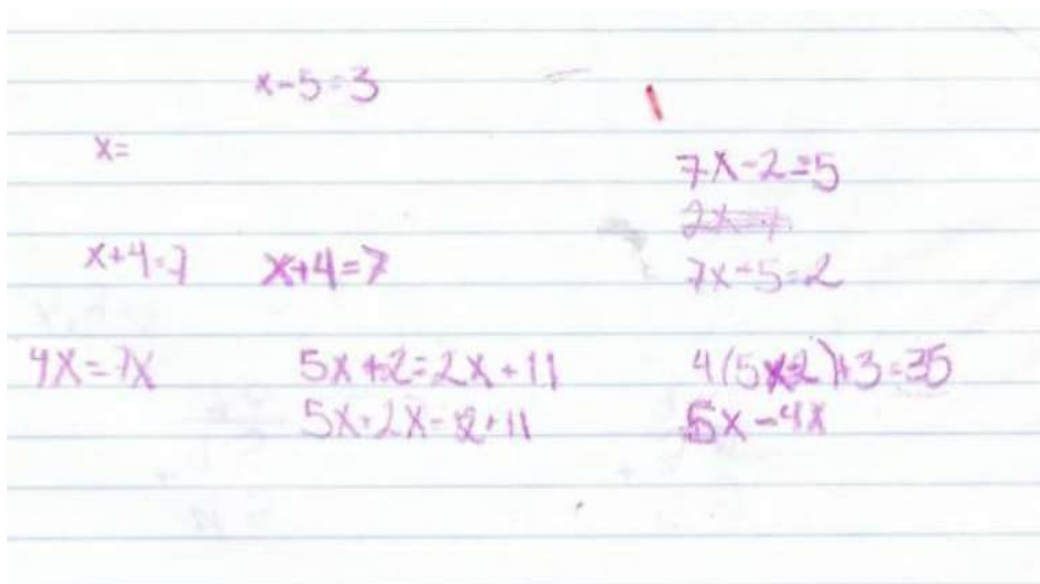 x-5=3
x=
7x-2=5
2x=7
x+4=7 x+4=7
7x-5=2
4x=7x 5x+2=2x+11 4(5x-2)+3=35
5x-2x=-2+11 5x-4x